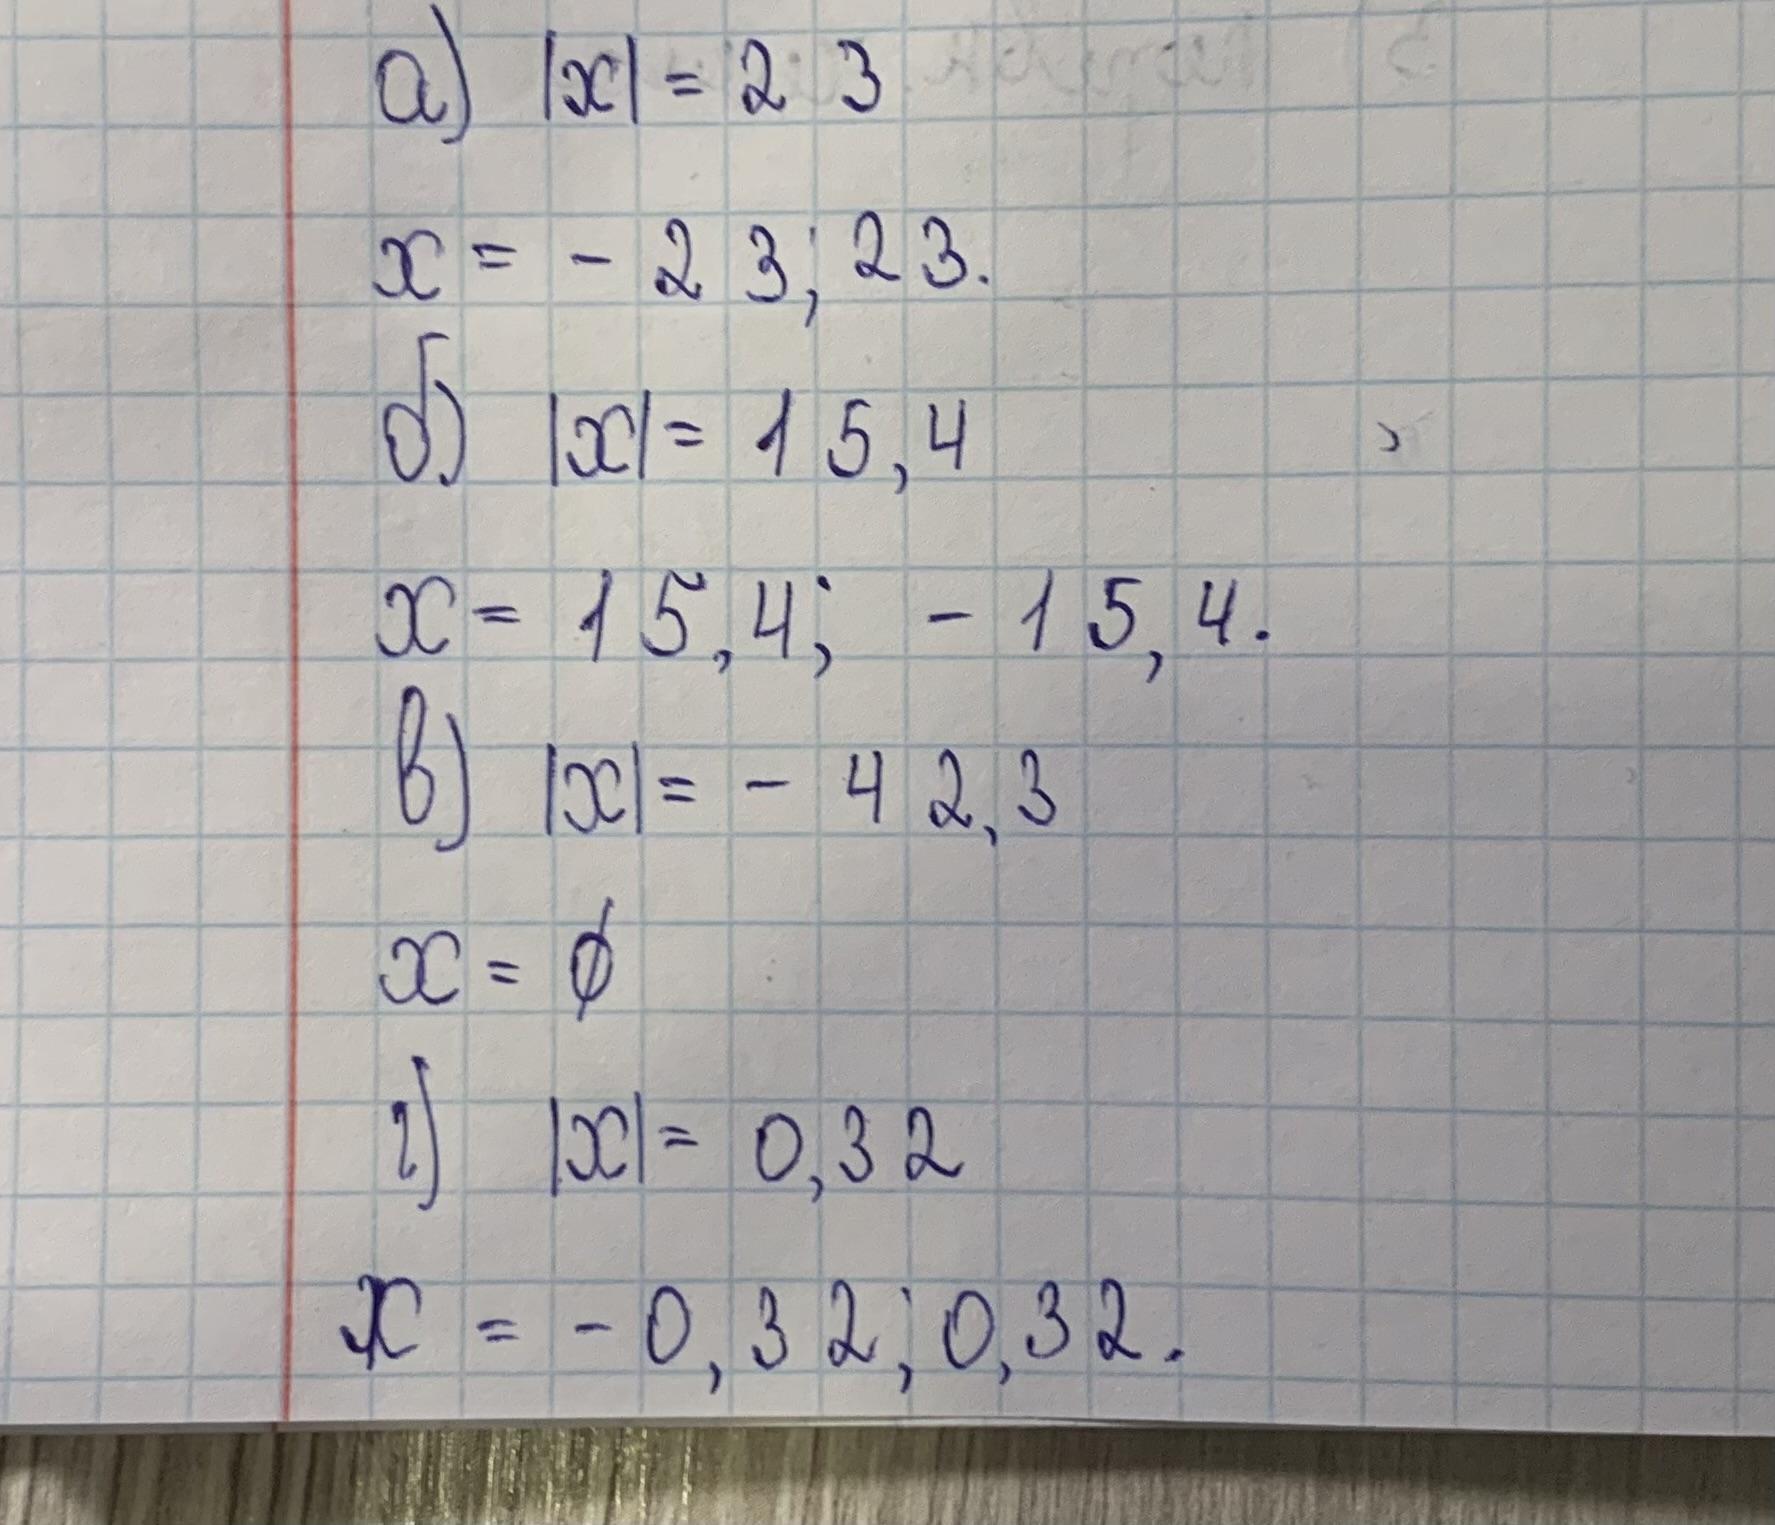 а) |x| = 23
x = - 23; 23.
б) |x| = 15,4
x = 15,4; - 15,4.
в) |x| = - 42,3
x = ∅
г) |x| = 0,32
x = - 0,32; 0,32.